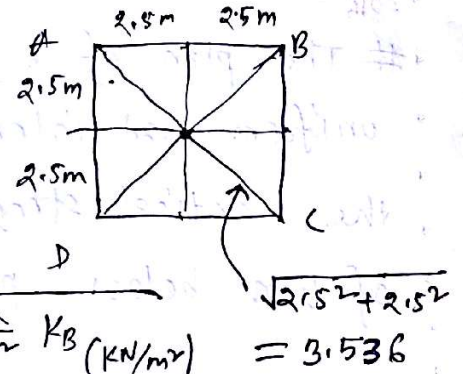 2.5m 2.5m
A B
2.5m
2.5m
C
D
√2.5²+2.5²
K_B (KN/m²) = 3.536